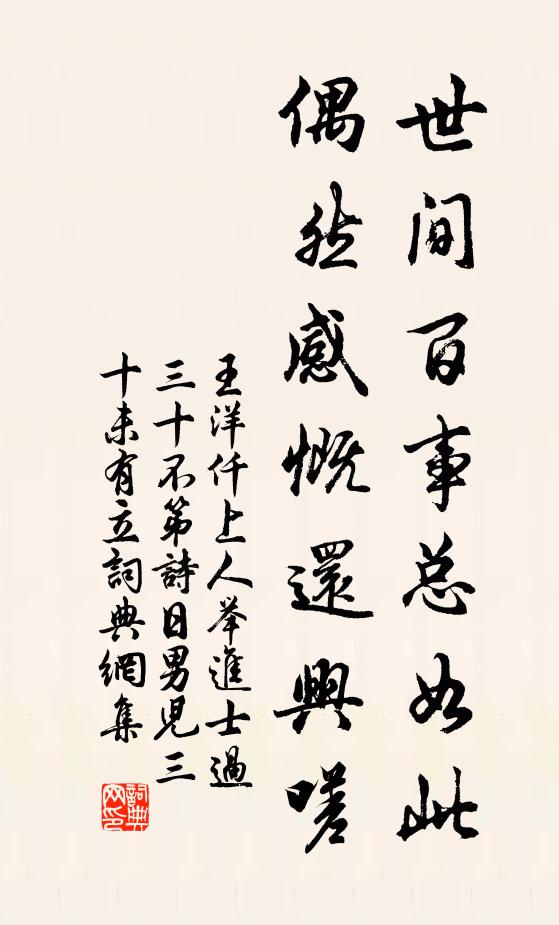 世间百事总如此
偶然感慨還興嗟
王洋仟上人举進士過
三十不第詩日男児三
十未有立詞典網集
詞典
网印